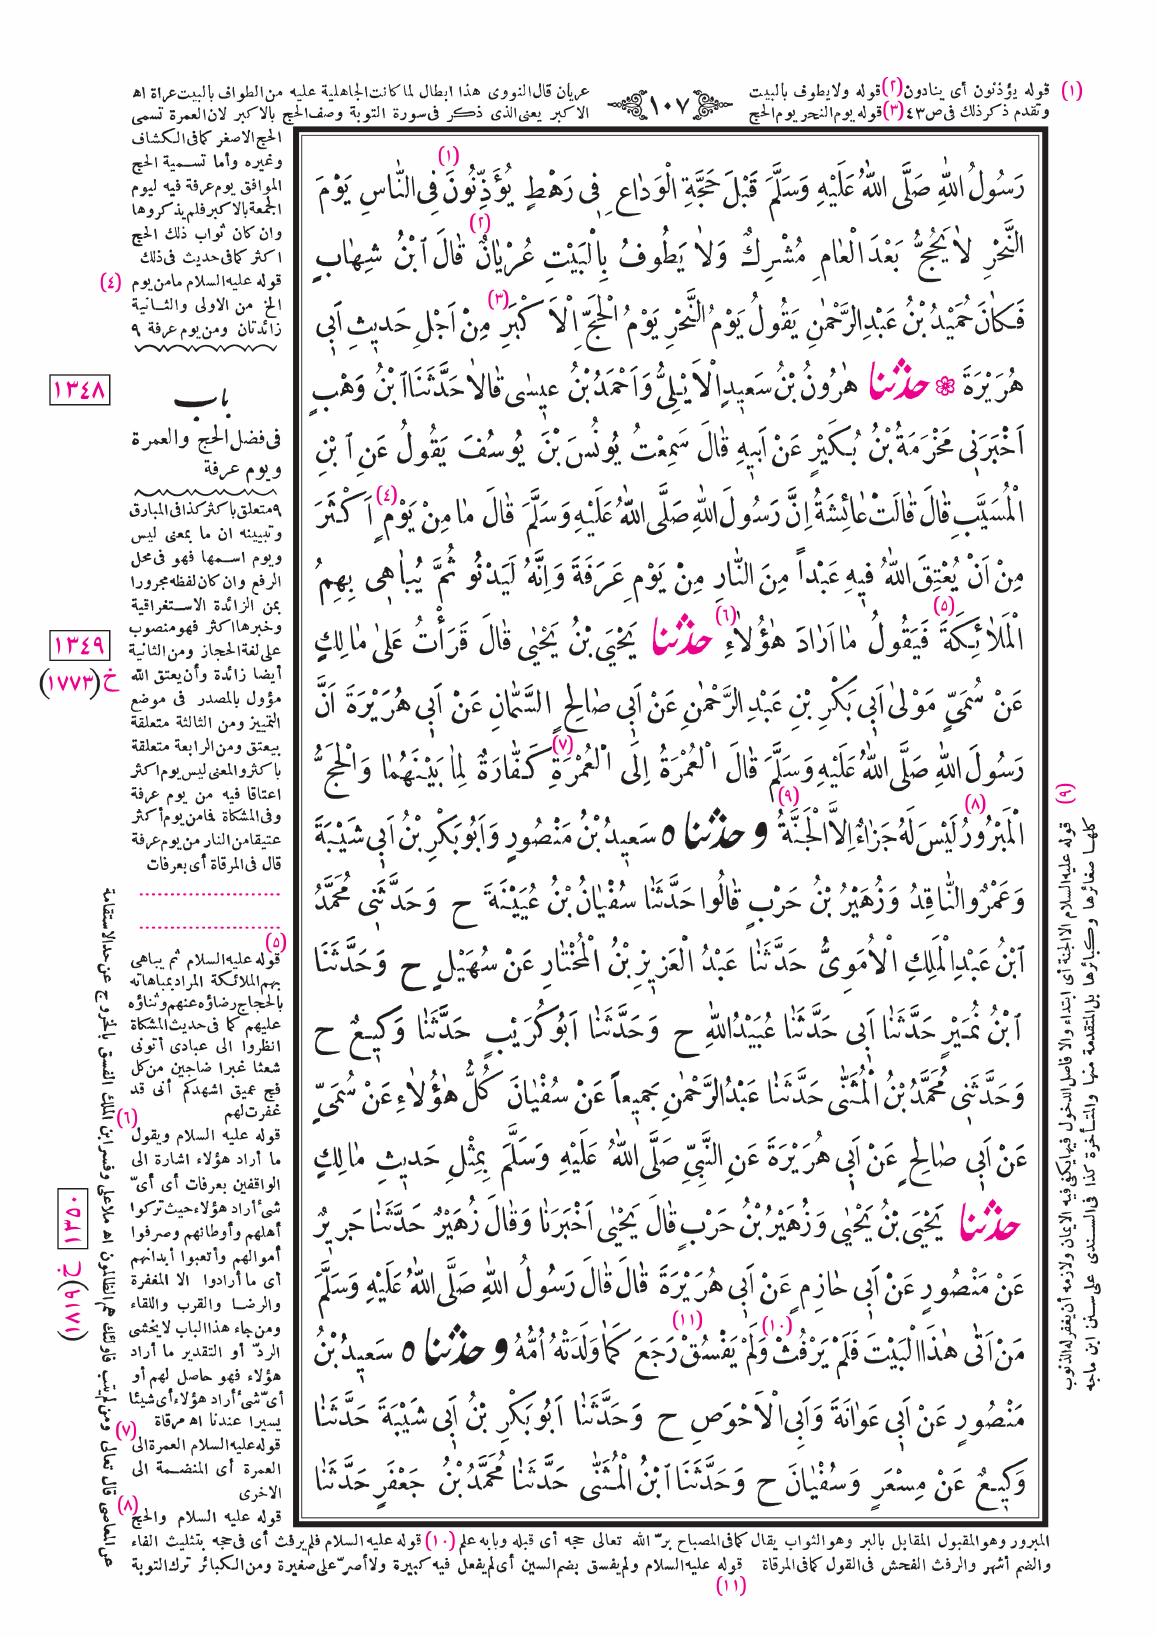 ١٠٧
(١) قوله يؤذنون أى ينادون (٢) قوله ولا يطوف بالبيت
وتقدم ذكر ذلك فى ص ٤٣ (٣) قوله يوم النحر يوم الحج
عريان قال النووى هذا ابطال لما كانت الجاهلية عليه من الطواف بالبيت عراة اه
الاكبر يعنى الذى ذكر فى سورة التوبة وصف الحج بالاكبر لان العمرة تسمى
الحج الاصغر كما فى الكشاف
وغيره وأما تسمية الحج
الموافق يوم عرفة فيه ليوم
الجمعة بالاكبر فلم يذكروها
وان كان ثواب ذلك الحج
اكثر كما فى حديث فى ذلك
(٤) قوله عليه السلام مامن يوم
الخ من الاولى والثانية
زائدتان ومن يوم عرفة ٩
رَسُولُ اللّٰهِ صَلَّى اللّٰهُ عَلَيْهِ وَسَلَّمَ قَبْلَ حَجَّةِ الْوَدَاعِ فِى رَهْطٍ يُؤَذِّنُونَ (١) فِى النَّاسِ يَوْمَ
النَّحْرِ لَا يَحُجُّ بَعْدَ الْعَامِ مُشْرِكٌ وَلَا يَطُوفُ بِالْبَيْتِ عُرْيَانٌ (٢) قَالَ ابْنُ شِهَابٍ
فَكَانَ حُمَيْدُ بْنُ عَبْدِ الرَّحْمٰنِ يَقُولُ يَوْمُ النَّحْرِ يَوْمُ الْحَجِّ (٣) الْاَكْبَرِ مِنْ اَجْلِ حَدِيثِ اَبِى
هُرَيْرَةَ ❀ حدثنا هٰرُونُ بْنُ سَعِيدٍ الْاَيْلِىُّ وَاَحْمَدُ بْنُ عِيسٰى قَالَا حَدَّثَنَا ابْنُ وَهْبٍ
اَخْبَرَنِى مَخْرَمَةُ بْنُ بُكَيْرٍ عَنْ اَبِيهِ قَالَ سَمِعْتُ يُونُسَ بْنَ يُوسُفَ يَقُولُ عَنِ ابْنِ
الْمُسَيَّبِ قَالَ قَالَتْ عَائِشَةُ اِنَّ رَسُولَ اللّٰهِ صَلَّى اللّٰهُ عَلَيْهِ وَسَلَّمَ قَالَ مَا مِنْ يَوْمٍ (٤) اَكْثَرَ
مِنْ اَنْ يُعْتِقَ اللّٰهُ فِيهِ عَبْداً مِنَ النَّارِ مِنْ يَوْمِ عَرَفَةَ وَاِنَّهُ لَيَدْنُو ثُمَّ يُبَاهِى بِهِمُ
الْمَلَائِكَةَ (٥) فَيَقُولُ مَا اَرَادَ هٰؤُلَاءِ (٦) حدثنا يَحْيَى بْنُ يَحْيٰى قَالَ قَرَأْتُ عَلٰى مَالِكٍ
عَنْ سُمَىٍّ مَوْلٰى اَبِى بَكْرِ بْنِ عَبْدِ الرَّحْمٰنِ عَنْ اَبِى صَالِحٍ السَّمَّانِ عَنْ اَبِى هُرَيْرَةَ اَنَّ
رَسُولَ اللّٰهِ صَلَّى اللّٰهُ عَلَيْهِ وَسَلَّمَ قَالَ الْعُمْرَةُ اِلَى الْعُمْرَةِ (٧) كَفَّارَةٌ لِمَا بَيْنَهُمَا وَالْحَجُّ
الْمَبْرُورُ (٨) لَيْسَ لَهُ جَزَاءٌ اِلَّا الْجَنَّةُ (٩) و حدثنا ٥ سَعِيدُ بْنُ مَنْصُورٍ وَاَبُو بَكْرِ بْنُ اَبِى شَيْبَةَ
وَعَمْرٌو النَّاقِدُ وَزُهَيْرُ بْنُ حَرْبٍ قَالُوا حَدَّثَنَا سُفْيَانُ بْنُ عُيَيْنَةَ ح وَحَدَّثَنِى مُحَمَّدُ
ابْنُ عَبْدِ الْمَلِكِ الْاُمَوِىُّ حَدَّثَنَا عَبْدُ الْعَزِيزِ بْنُ الْمُخْتَارِ عَنْ سُهَيْلٍ ح وَحَدَّثَنَا
ابْنُ نُمَيْرٍ حَدَّثَنَا اَبِى حَدَّثَنَا عُبَيْدُ اللّٰهِ ح وَحَدَّثَنَا اَبُو كُرَيْبٍ حَدَّثَنَا وَكِيعٌ ح
وَحَدَّثَنِى مُحَمَّدُ بْنُ الْمُثَنّٰى حَدَّثَنَا عَبْدُ الرَّحْمٰنِ جَمِيعاً عَنْ سُفْيَانَ كُلُّ هٰؤُلَاءِ عَنْ سُمَىٍّ
عَنْ اَبِى صَالِحٍ عَنْ اَبِى هُرَيْرَةَ عَنِ النَّبِىِّ صَلَّى اللّٰهُ عَلَيْهِ وَسَلَّمَ بِمِثْلِ حَدِيثِ مَالِكٍ
حدثنا يَحْيَى بْنُ يَحْيٰى وَزُهَيْرُ بْنُ حَرْبٍ قَالَ يَحْيٰى اَخْبَرَنَا وَقَالَ زُهَيْرٌ حَدَّثَنَا جَرِيرٌ
عَنْ مَنْصُورٍ عَنْ اَبِى حَازِمٍ عَنْ اَبِى هُرَيْرَةَ قَالَ قَالَ رَسُولُ اللّٰهِ صَلَّى اللّٰهُ عَلَيْهِ وَسَلَّمَ
مَنْ اَتٰى هٰذَا الْبَيْتَ فَلَمْ يَرْفُثْ (١٠) وَلَمْ يَفْسُقْ (١١) رَجَعَ كَمَا وَلَدَتْهُ اُمُّهُ و حدثنا ٥ سَعِيدُ بْنُ
مَنْصُورٍ عَنْ اَبِى عَوَانَةَ وَاَبِى الْاَحْوَصِ ح وَحَدَّثَنَا اَبُو بَكْرِ بْنُ اَبِى شَيْبَةَ حَدَّثَنَا
وَكِيعٌ عَنْ مِسْعَرٍ وَسُفْيَانَ ح وَحَدَّثَنَا ابْنُ الْمُثَنّٰى حَدَّثَنَا مُحَمَّدُ بْنُ جَعْفَرٍ حَدَّثَنَا
١٣٤٨
باب
فى فضل الحج والعمرة
ويوم عرفة
٩ متعلق باكثر كذا فى المبارق
وتبيينه ان ما بمعنى ليس
ويوم اسمها فهو فى محل
الرفع وان كان لفظه مجرورا
بمن الزائدة الاستغراقية
وخبرها اكثر فهو منصوب
على لغة الحجاز ومن الثانية
أيضا زائدة وأن يعتق الله
مؤول بالمصدر فى موضع
التمييز ومن الثالثة متعلقة
بيعتق ومن الرابعة متعلقة
باكثر والمعنى ليس يوم اكثر
اعتاقا فيه من يوم عرفة
وفى المشكاة فما من يوم أكثر
عتيقا من النار من يوم عرفة
قال فى المرقاة أى بعرفات
١٣٤٩
خ (١٧٧٣)
(٥)
قوله عليه السلام ثم يباهى
بهم الملائكة المراد بمباهاته
بالحجاج رضاؤه عنهم وثناؤه
عليهم كما فى حديث المشكاة
انظروا الى عبادى أتونى
شعثا غبرا ضاجين من كل
فج عميق اشهدكم أنى قد
غفرت لهم
(٦)
قوله عليه السلام ويقول
ما أراد هؤلاء اشارة الى
الواقفين بعرفات أى أىّ
شىء أراد هؤلاء حيث تركوا
أهلهم وأوطانهم وصرفوا
أموالهم وأتعبوا أبدانهم
أى ما أرادوا الا المغفرة
والرضا والقرب واللقاء
ومن جاء هذا الباب لا يخشى
الردّ أو التقدير ما أراد
هؤلاء فهو حاصل لهم أو
أىّ شىء أراد هؤلاء أى شيئا
يسيرا عندنا اه مرقاة
(٧)
قوله عليه السلام العمرة الى
العمرة أى المنضمة الى
الاخرى
(٨)
قوله عليه السلام والحج
١٣٥٠
خ (١٨١٩)
المبرور وهو المقبول المقابل بالبر وهو الثواب يقال كما فى المصباح برّ الله تعالى حجه أى قبله وبابه علم (١٠) قوله عليه السلام فلم يرفث أى فى حجه بتثليث الفاء
والضم أشهر والرفث الفحش فى القول كما فى المرقاة قوله عليه السلام ولم يفسق بضم السين أى لم يفعل فيه كبيرة ولا أصرّ على صغيرة ومن الكبائر ترك التوبة
(١١)
عن المعاصى قال تعالى ومن لم يتب فاولئك هم الظالمون اه ملا على وفسر ابن الملك الفسق بالخروج عن حد الاستقامة
(٩)
قوله عليه السلام الا الجنة أى ابتداء والا فاصل الدخول فيها يكفى فيه الايمان ولازمه أن يغفر له الذنوب
كلها صغائرها وكبائرها بل المتقدمة منها والمتأخرة كذا فى السندى على سنن ابن ماجه